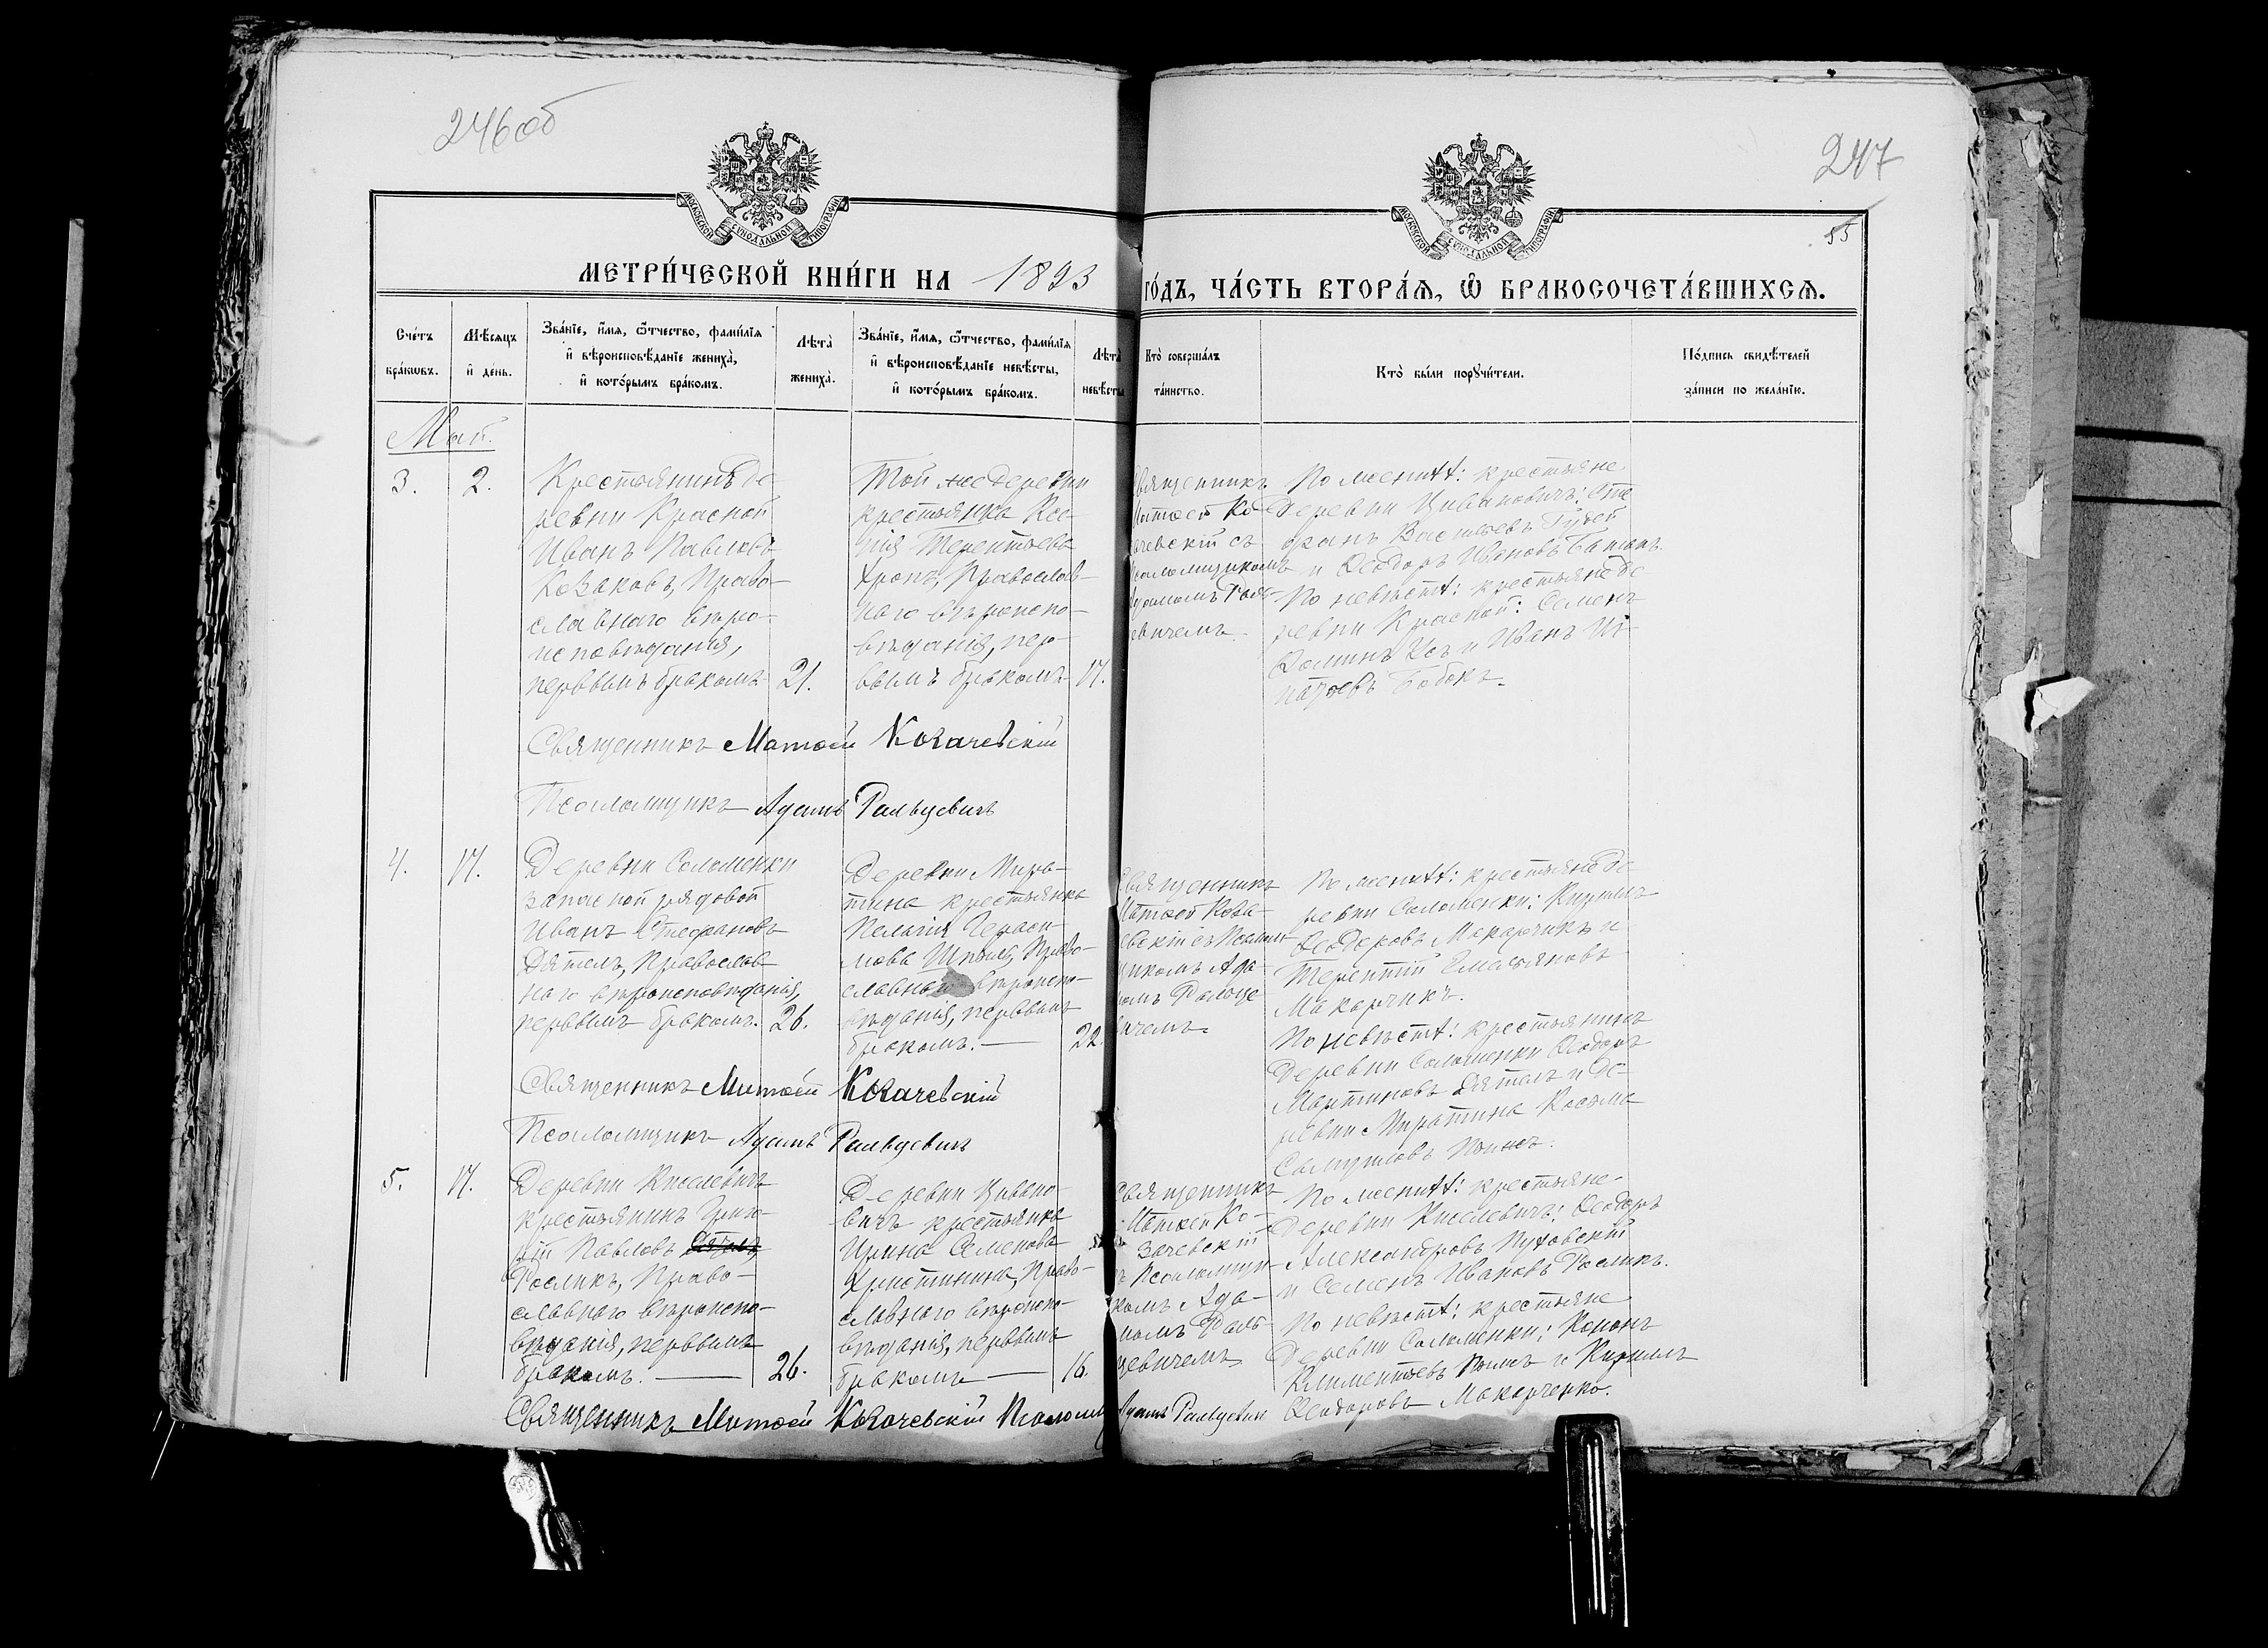 246об
247
55
МОСКОВСКОЙ СѴНОДАЛЬНОЙ ТИПОГРАФІИ
МОСКОВСКОЙ СѴНОДАЛЬНОЙ ТИПОГРАФІИ
МЕТРИ́ЧЕСКОЙ КНИ́ГИ НА 1893 ГО́ДЪ, ЧА́СТЬ ВТОРА́Ѧ, Ѿ БРАКОСОЧЕТА́ВШИХСѦ.
Сче́тъ
бра́кѡвъ.
Мѣ́сѧцъ
и҆ день.
Зва́нїе, и҆́мѧ, ѻ҆́тчество, фами́лїѧ
и҆ вѣроисповѣ́данїе жениха̀,
и҆ кото́рымъ бра́комъ.
Лѣта̀
жениха̀.
Зва́нїе, и҆́мѧ, ѻ҆́тчество, фами́лїѧ
и҆ вѣроисповѣ́данїе невѣ́сты,
и҆ кото́рымъ бра́комъ.
Лѣта̀
невѣ́сты
Кто̀ соверша́лъ
та́инство.
Кто̀ бы́ли порꙋчи́тели.
По́дпись свидѣ́телей
за́писи по жела́нїю.
Май.
3.
2.
Крестьянинъ де-
ревни Красной
Иванъ Павловъ
Козаковъ, Право-
славнаго вѣро-
исповѣданія,
первымъ бракомъ
21.
Той же деревни
крестьянка Ксе-
нія Терентьева
Православ-
наго вѣроиспо-
вѣданія, пер-
вымъ бракомъ
17.
Священникъ
Матѳей Ко-
зачевскій съ
Псаломщикомъ
Адамомъ
По женихѣ: крестьяне
Деревни Цивановичъ: Сте
фанъ Васильевъ
и Ѳеодоръ Ивановъ
По невѣстѣ: крестьяне де-
ревни Красной: Семенъ
Ѳоминъ и Иванъ Иг-
натьевъ Бобокъ.
Священникъ Матѳей Козачевскій
Псаломщикъ Адамъ Ральцевичъ
4.
17.
Деревни Соломенки
запасной рядовой
Иванъ Стефановъ
Дятелъ, Православ-
наго вѣроисповѣданія,
первымъ бракомъ.
26.
Деревни Миро-
тина крестьянка
Пелагія Гераси-
мова Право-
славнаго вѣроиспо-
вѣданія, первымъ
бракомъ.
22.
Священникъ
Матѳей Коза-
чевскій съ Псалом-
щикомъ Ада-
момъ Ральце-
вичемъ.
По женихѣ: крестьяне де-
ревни Соломенки: Кириллъ
Ѳеодоровъ Макарчикъ и
Терентій Емельяновъ
Макарчикъ.
По невѣстѣ: крестьянинъ
Деревни Соломенки Ѳеодоръ
Мартиновъ Дятелъ и де-
ревни Миротина Косьма
Священникъ Матѳей Козачевскій
Псаломщикъ Адамъ Ральцевичъ
5.
17.
Деревни Киселевичъ
крестьянинъ Григо-
рій Павловъ
Росликъ, Право-
славнаго вѣроиспо-
вѣданія, первымъ
бракомъ.
26.
Деревни Цивано-
вичъ крестьянка
Ирина Семенова
Христинина, Право-
славнаго вѣроиспо-
вѣданія, первымъ
бракомъ
16.
Священникъ
Матѳей Ко-
зачевскій
съ Псаломщи-
комъ Ада-
момъ Раль-
цевичемъ
По женихѣ: крестьяне
Деревни Киселевичъ: Ѳеодоръ
Александровъ Пуховскій
и Семенъ Ивановъ Росликъ.
По невѣстѣ: крестьяне
Деревни Соломенки: Кононъ
Климентьевъ и Кириллъ
Ѳеодоровъ Макарченко.
Священникъ Матѳей Козачевскій Псаломщ Адамъ Ральцевич